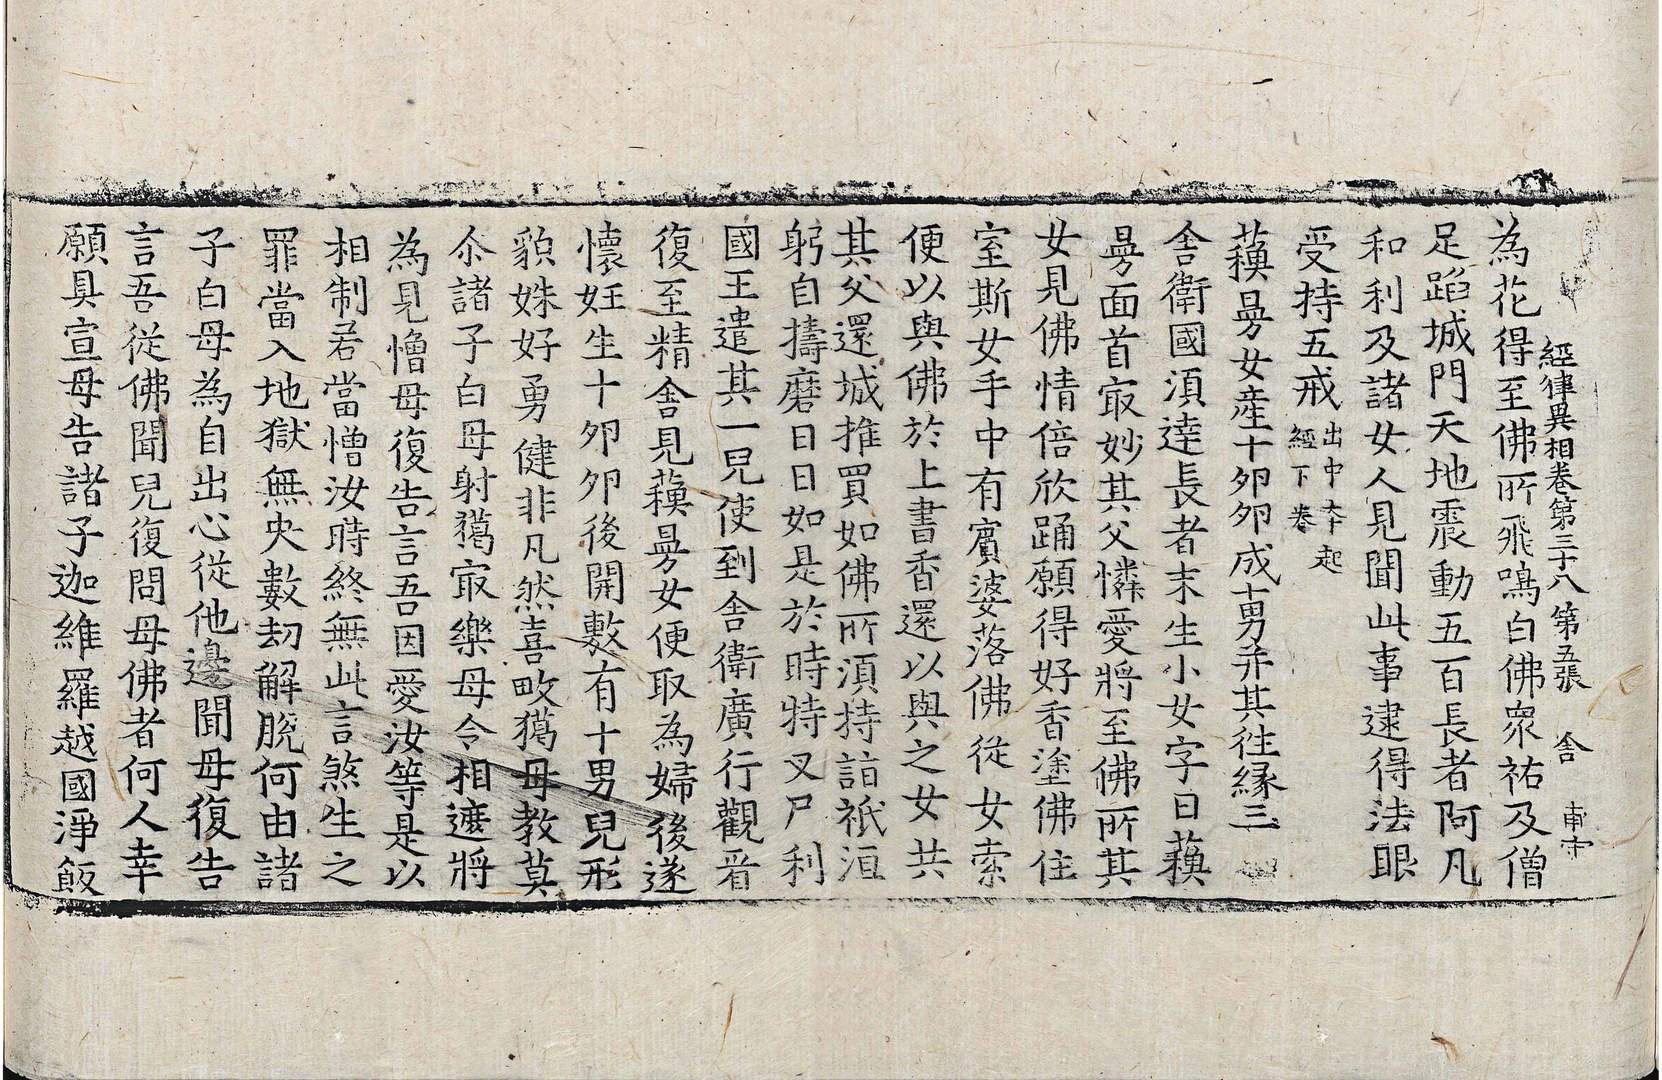 經律異相卷第三十八 第五張 舍
為花得至佛所飛鳴白佛衆祐及僧
足蹈城門天地震動五百長者阿凡
和利及諸女人見聞此事逮得法眼
受持五戒出中夲起經下卷
蘱㝵女産十夘夘成十男并其徃縁三
舍衛國湏逹長者末生小女字曰蘱
㝵面首㝡妙其父憐愛將至佛所其
女見佛情倍欣踊願得好香塗佛住
室斯女手中有賔婆落佛從女索
便以與佛於上書香還以與之女共
其父還城推買如佛所湏持詣祇洹
躬自擣磨日日如是於時特叉尸利
國王遣其一兒使到舍衛廣行觀㸔
復至精舍見蘱㝵女便取為婦後遂
懷妊生十夘夘後開敷有十男兒形
貌姝好勇健非凡然喜畋獵母教莫
尒諸子白母射獵㝡樂母令相遮將
為見憎母復告言吾因愛汝等是以
相制若當憎汝時終無此言煞生之
罪當入地獄無央數劫解脫何由諸
子白母為自出心從他邊聞母復告
言吾從佛聞兒復問母佛者何人幸
願具宣母告諸子迦維羅越國淨飯